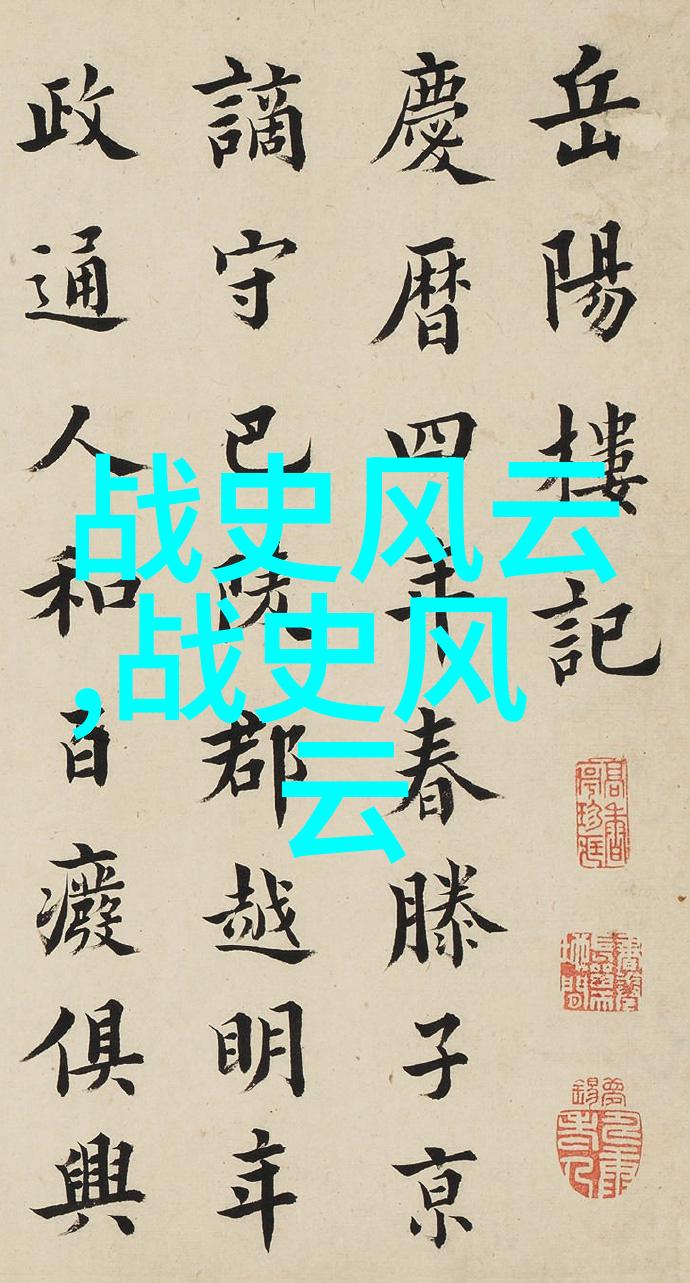 岳陽樓記
慶暦四年春滕子京
謫守巴陵郡越明年
政通人和百癈俱興
战史风云
,战史风
云